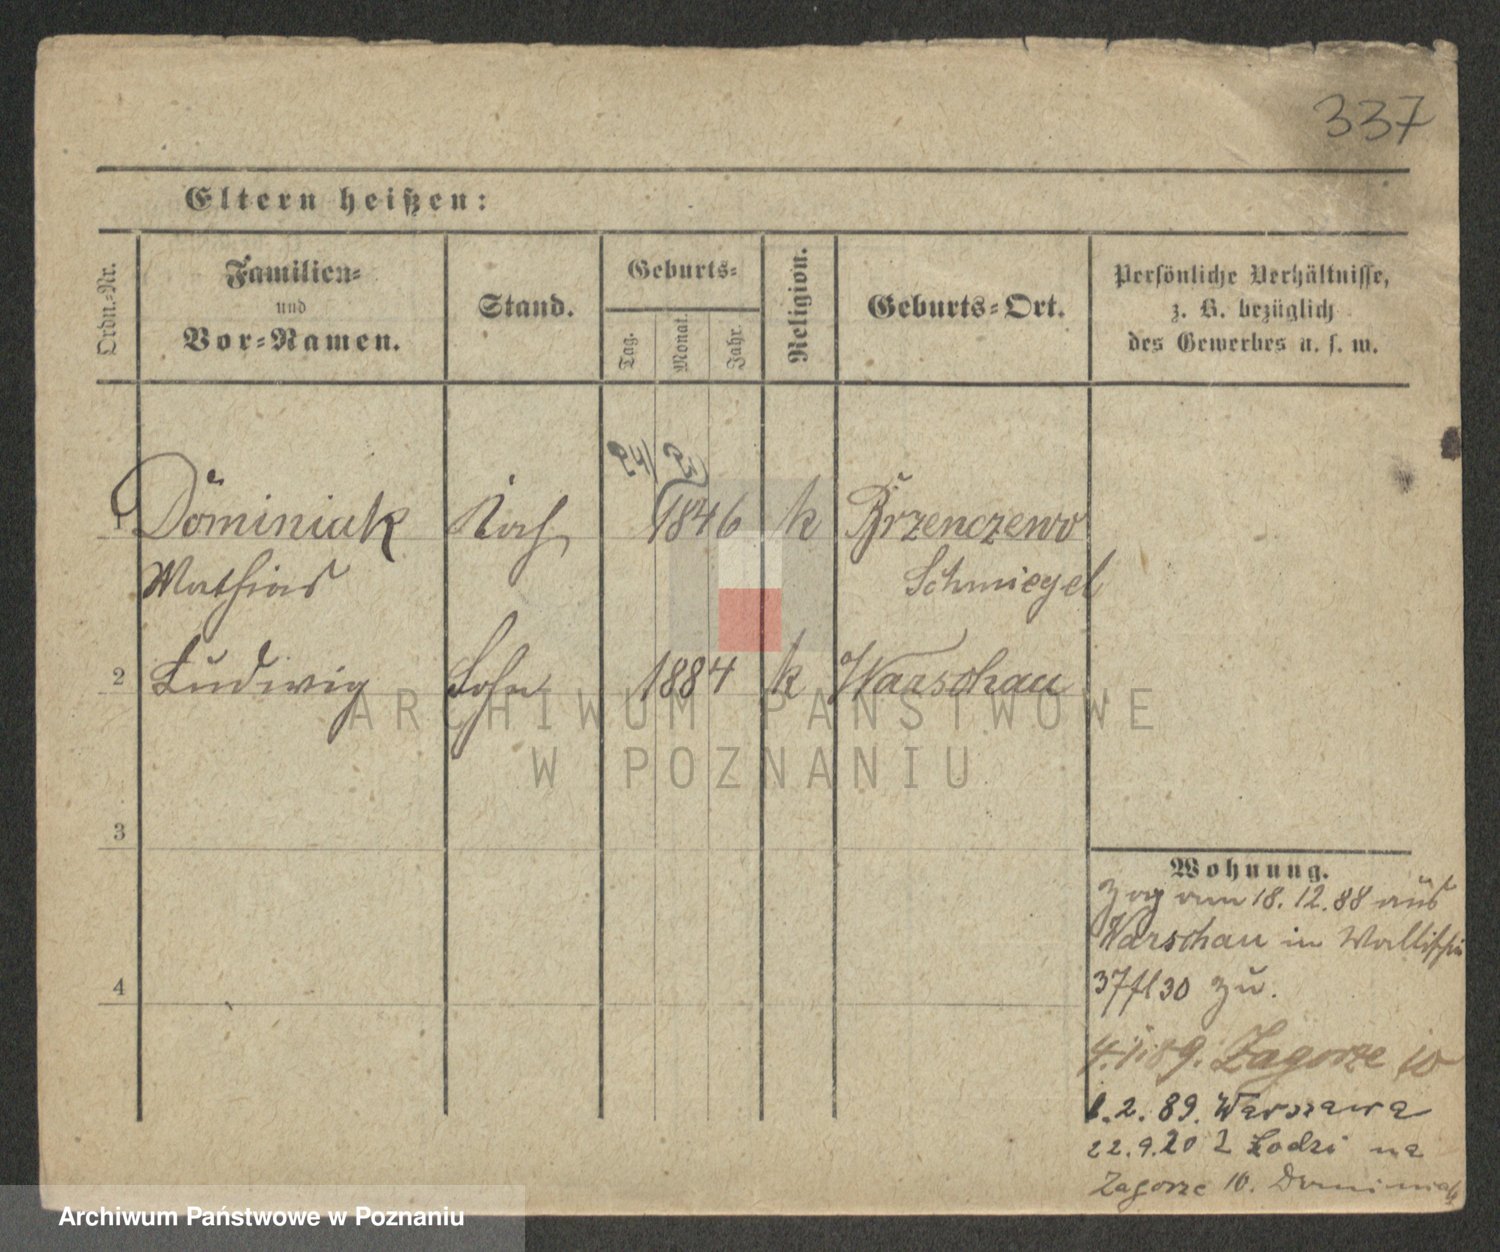 337
Eltern heißen:
Ordn.-Nr.
Familien-
und
Vor-Namen.
Stand.
Geburts-
Tag.
Monat.
Jahr.
Religion.
Geburts-Ort.
Persönliche Verhältnisse,
z. B. bezüglich
des Gewerbes u. s. w.
24/2
1 Dominiak Koch 1846 k Brzenczewo
Mathias Schmiegel
2 Ludwig Sohn 1884 k Warschau
3
4
Wohnung.
Zog am 18.12.88 aus
Warschau in Wallischei
37 fl 30 zu.
4.1.89. Zagorze 10
1.2.89. Warszawa
22.9.20 z Łodzi na
Zagorze 10. Dominiak
ARCHIWUM PAŃSTWOWE
W POZNANIU
Archiwum Państwowe w Poznaniu